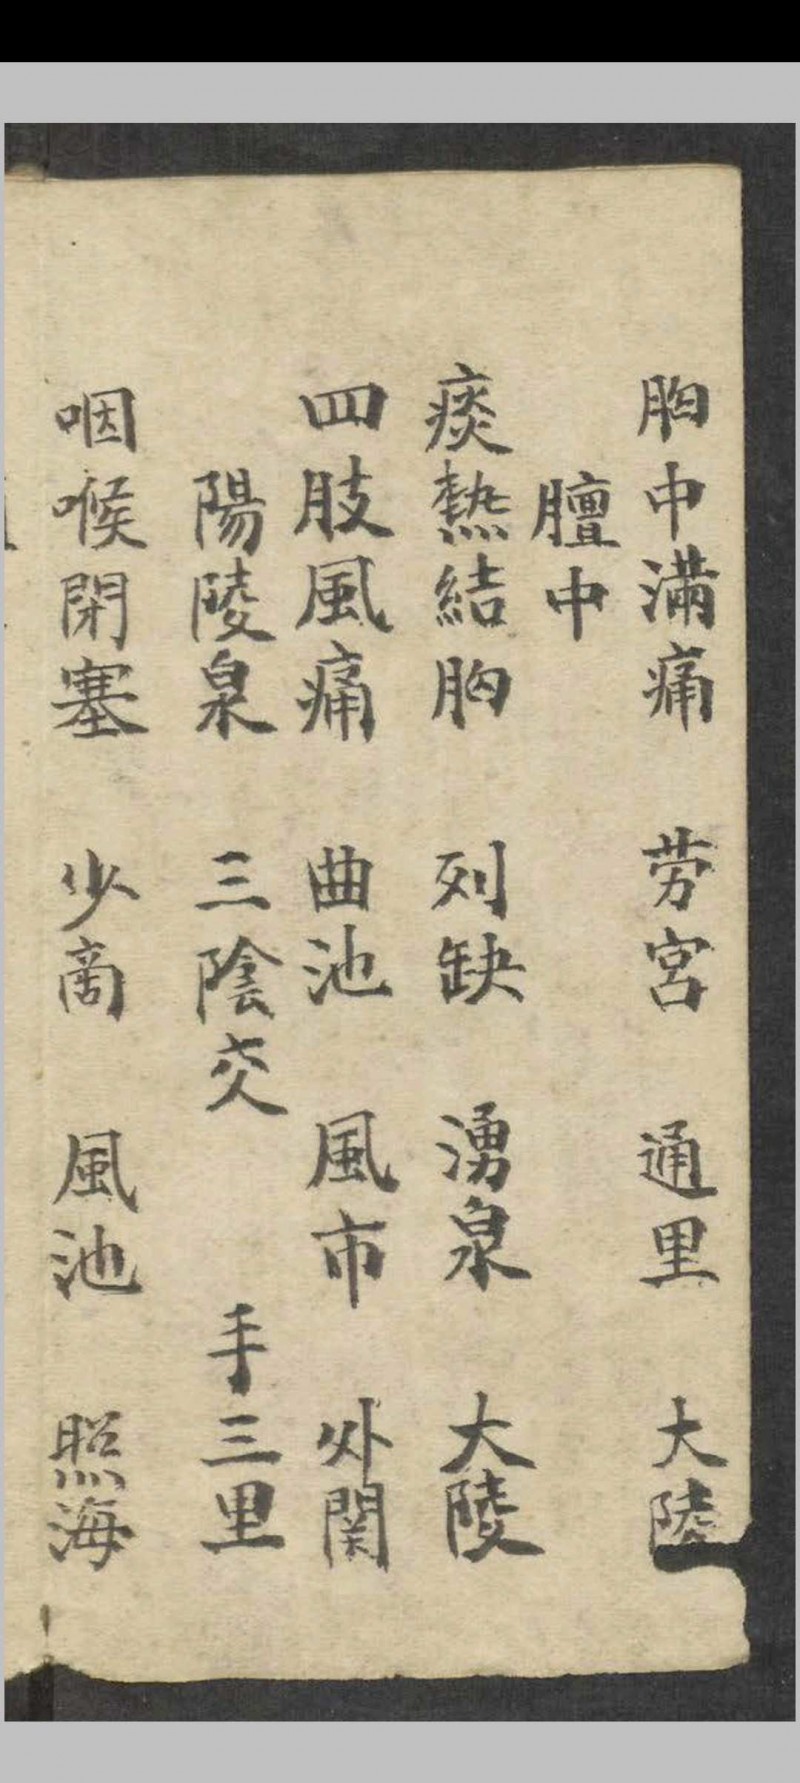 胷中滿痛 劳宮 通里 大陵
膻中
痰熱結胷 列缺 湧泉 大陵
四肢風痛 曲池 風市 外関
陽陵泉 三陰交 手三里
咽喉閉塞 少商 風池 照海